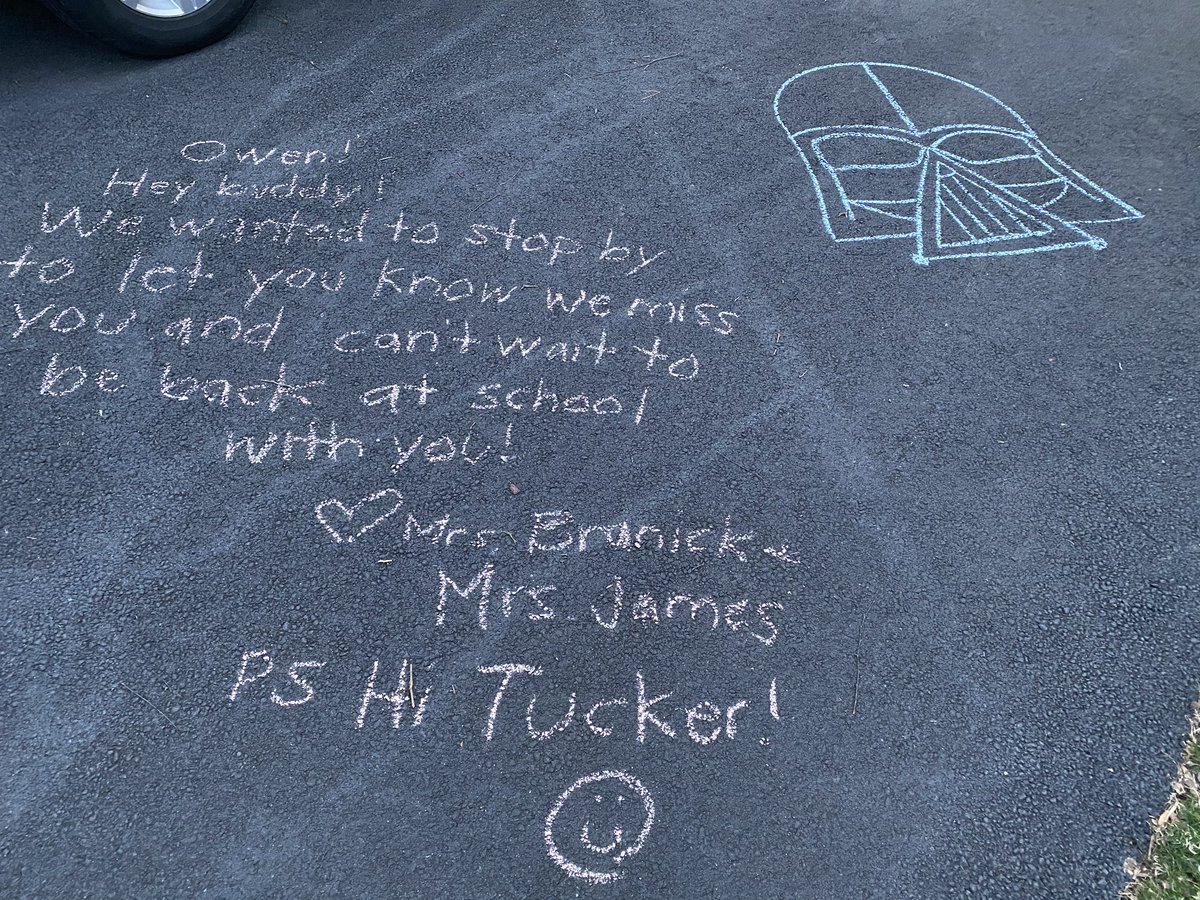 Owen!
Hey buddy!
We wanted to stop by
to let you know we miss
you and can't wait to
be back at school
with you!
♡ Mrs. Branick +
Mrs. James
PS Hi Tucker!